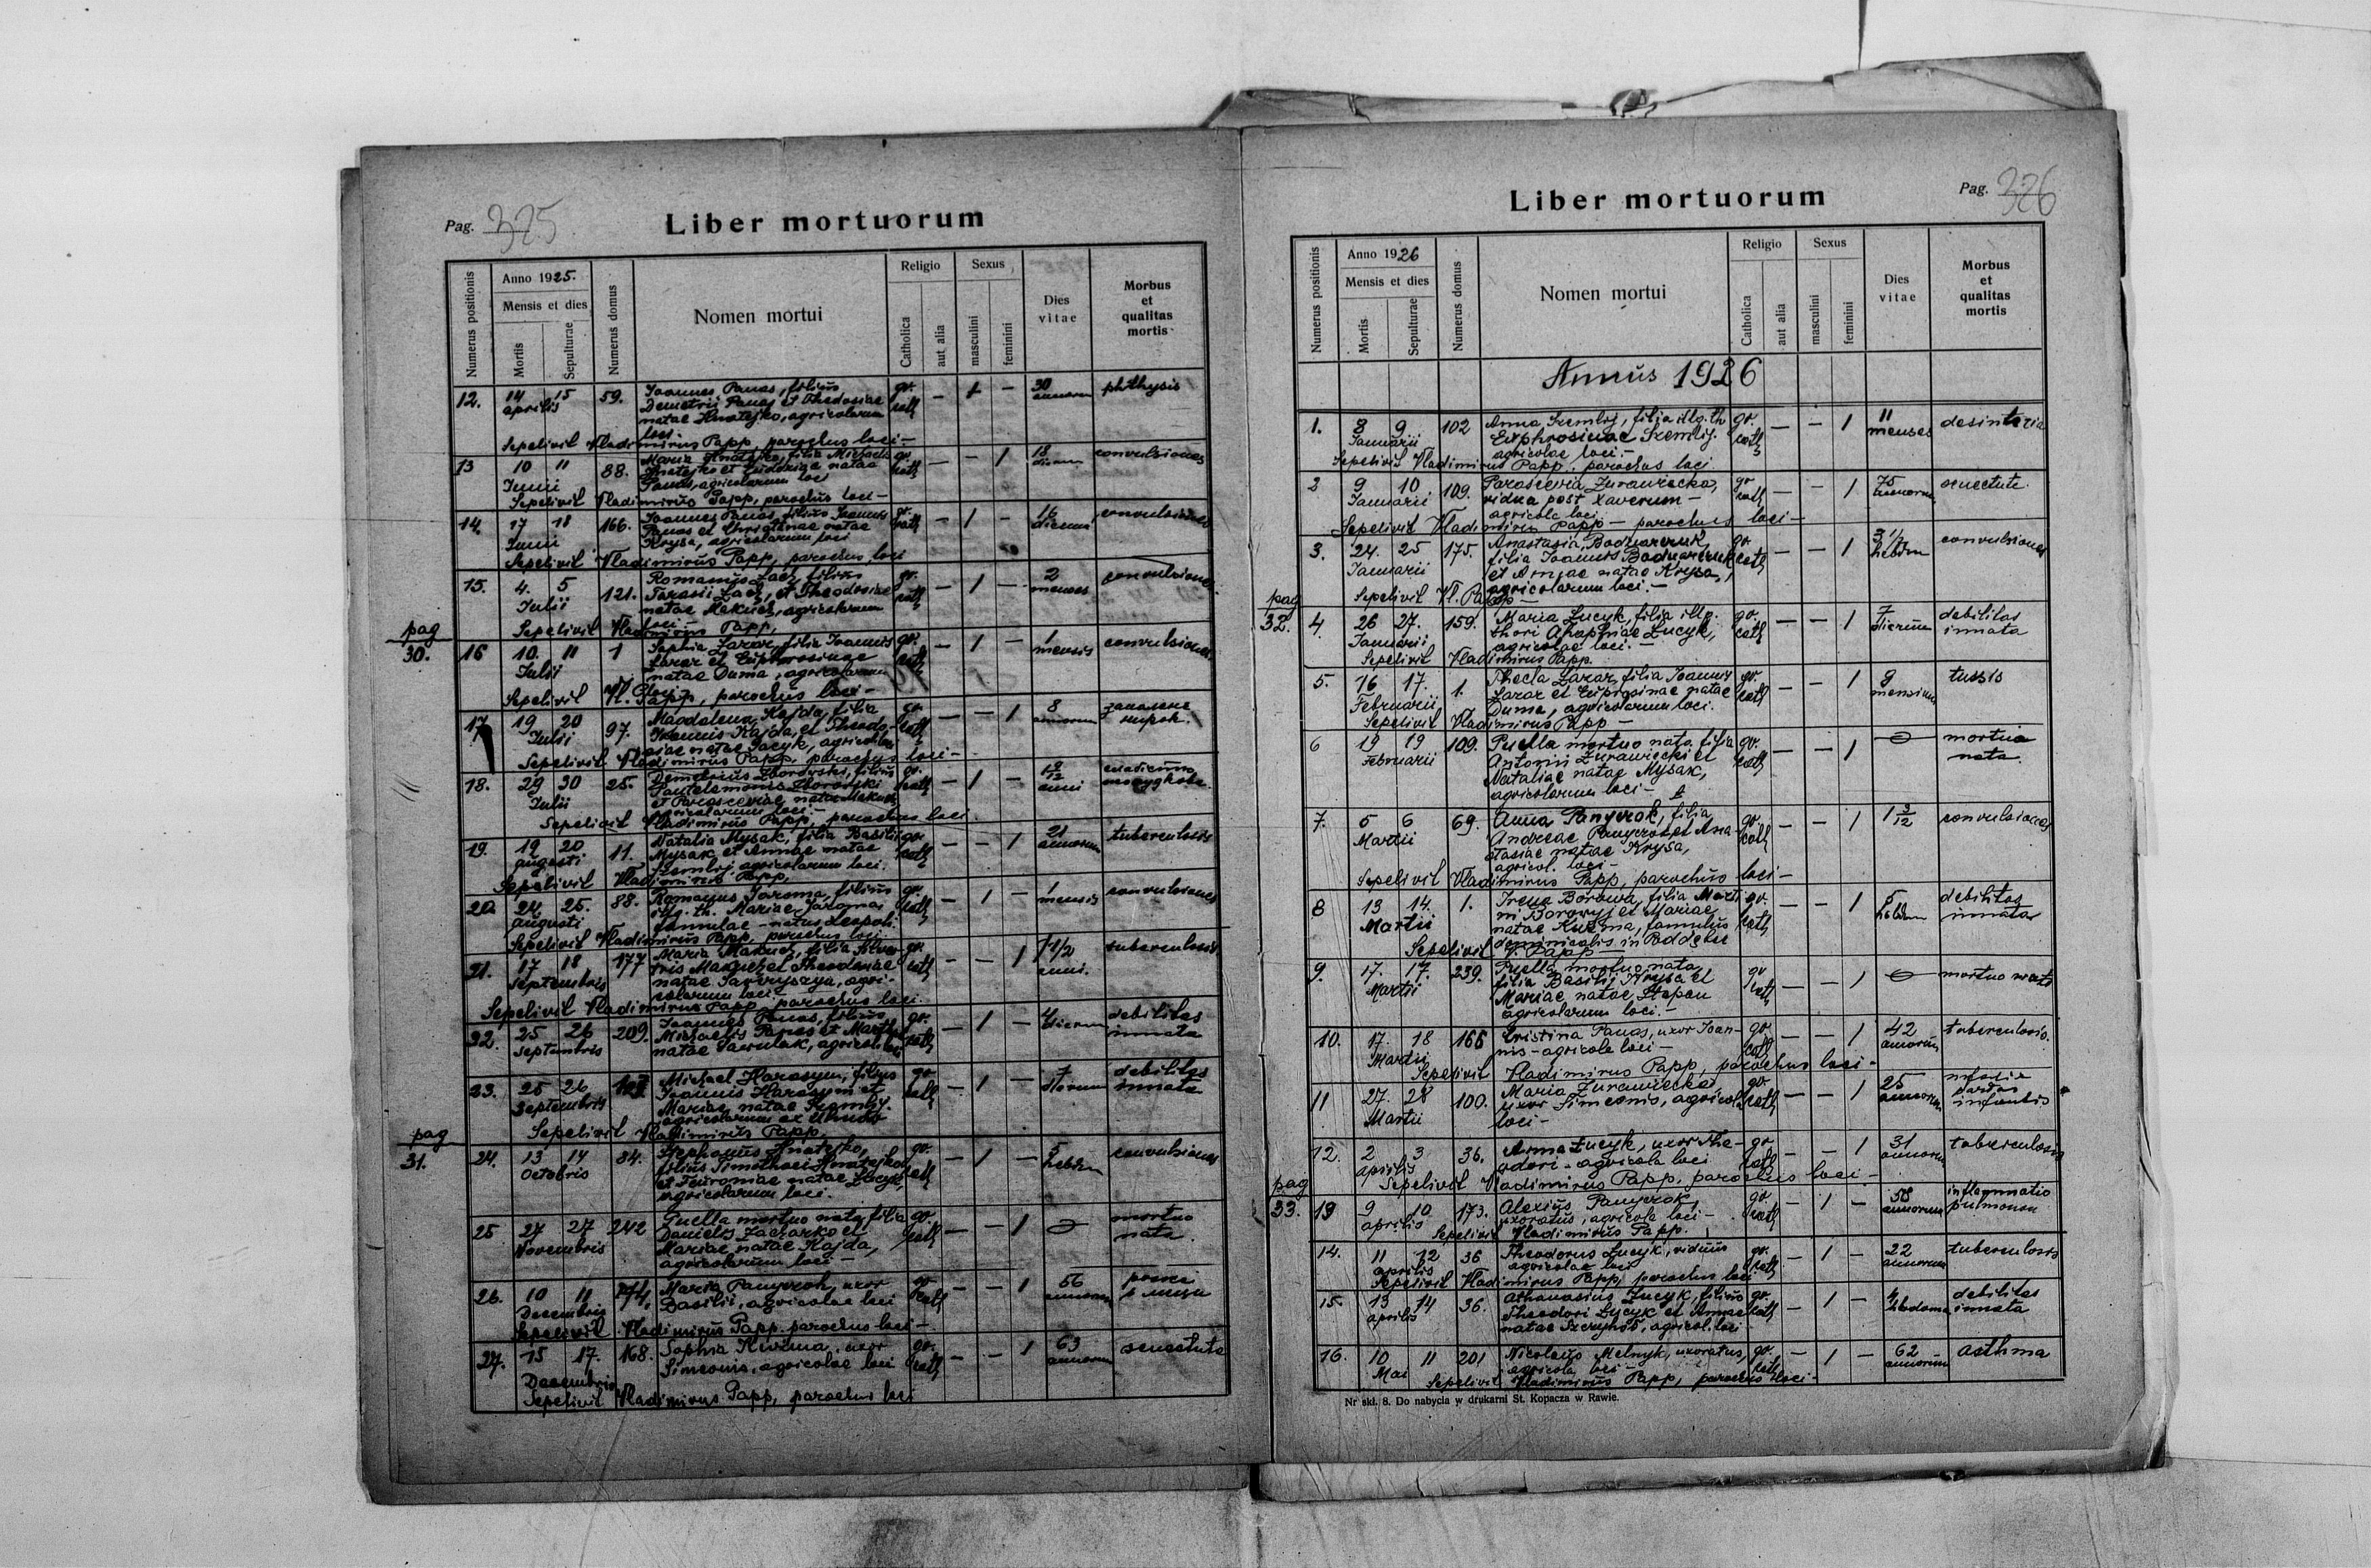 Pag. 325
Liber mortuorum
Numerus positionis
Anno 1925.
Mensis et dies
Mortis
Sepulturae
Numerus domus
Nomen mortui
Religio
Catholica
aut alia
Sexus
masculini
feminini
Dies vitae
Morbus et qualitas mortis
12. 14 15 59. Joannes Panas, filius gr. — 1 — 30 phthysis
aprilis Demetrii Panas et Thedosiae cath annorum
natae Hnatejko, agricolarum
loci.
Sepelivit Vladimirus Papp, parochus loci —
13 10 11 88. Maria Hnatejko, filia Michaelis gr. — — 1 18 convulsiones
Junii Hnatejko et natae cath dierum
Panas, agricolarum loci
Sepelivit Vladimirus Papp, parochus loci —
14. 17 18 166. Joannes Panas, filius Joannis gr. — 1 — 16 convulsiones
Junii Panas et Christinae natae cath dierum
Krysa, agricolarum loci
Sepelivit Vladimirus Papp, parochus loci
15. 4. 5 121. Romanus filius gr. — 1 — 2 convulsiones
Julii Tarasii et Theodosiae cath menses
natae Makuch, agricolarum
loci —
Sepelivit Vladimirus Papp,
pag 30.
16 10. 11 1 Sophia Lazar, filia Joannis gr. — 1 — 1 convulsiones
Julii Lazar et Euphrosinae cath mensis
natae Duma, agricolarum
loci —
Sepelivit Vl. Papp, parochus loci —
17 19 20 97. Magdalena Kajda, filia gr. — — 1 8 запалене
Julii Joannis Kajda, et Theodo- cath annorum нирок.
siae natae Jacyk, agricolarum
Sepelivit Vladimirus Papp, parochus loci —
18. 29 30 25. Demetrius Zborowski, filius gr. — 1 —
Julii Pantelemonis Zborowski cath anni
et Parasceviae natae Makuch
agricolarum loci —
Sepelivit Vladimirus Papp, parochus loci
19. 19 20 11. Natalia Mysak, filia Basilii gr. — — 1 21 tuberculosis
augusti Mysak, et Annae natae cath annorum
Szemlij, agricolarum loci.
Sepelivit Vladimirus Papp,
20. 24 25. 88. Romanus Jarema, filius gr. — 1 — 1 convulsiones
augusti illg. th. Mariae Jarema cath mensis
famulae — natus Leopoli.
Sepelivit Vladimirus Papp, parochus loci.
21. 17 18 177 Maria Makuch, filia gr. — — 1 1 1/2 tuberculosis
Septembris Makuch et Theodosiae cath anni.
natae agri-
colarum loci —
Sepelivit Vladimirus Papp parochus loci.
22. 25 26 209. Joannes Panas, filius gr. — 1 — 4 debilitas
Septembris Michaelis Panas et Marthae cath dierum innata
natae Pawulak, agricol. loci
23. 25 26 Michael Harasym, filius gr. — 1 — 7 debilitas
Septembris Joannis Harasym et cath dierum innata
Mariae natae Szemlij.
agricolarum
Sepelivit Vladimirus Papp.
pag 31.
24. 13 14 84. Stephanus Hnatejko, gr. — 1 — 5 convulsiones
Octobris filius Timothaei Hnatejko cath hebdm
et Feuroniae natae Lucyk,
agricolarum loci.
25 27 27 242 Puella mortuo nata, filia gr. — — 1 mortuo
Novembris Danielis Zacharko et cath nata.
Mariae natae Kajda,
agricolarum loci —
26. 10 11 174. Maria Panyczok, uxor gr. — — 1 56
Decembris Basilii, agricolae loci cath annorum
Sepelivit Vladimirus Papp. parochus loci —
27. 15 17. 168. Sophia Kuzma, uxor gr. — — 1 63 senectute
Decembris Simeonis, agricolae loci cath annorum
Sepelivit Vladimirus Papp, parochus loci
Pag. 326
Liber mortuorum
Numerus positionis
Anno 1926
Mensis et dies
Mortis
Sepulturae
Numerus domus
Nomen mortui
Religio
Catholica
aut alia
Sexus
masculini
feminini
Dies vitae
Morbus et qualitas mortis
Annus 1926
1. 8 9 102 Anna Szemlij, filia illg. th. gr. — — 1 11 desinteria
Januarii Euphrosinae Szemlij. cath menses
agricolae loci. —
Sepelivit Vladimirus Papp. parochus loci
2 9 10 109. Parascevia Zurawiecka, gr. — — 1 75 senectute
Januarii vidua post Xaverum — cath annorum
agricola loci
Sepelivit Vladimirus Papp — parochus loci —
3. 24. 25 175. Anastasia Bodnarczuk, gr. — — 1 convulsiones
Januarii filia Joannis Bodnarczuk cath hebdm
et Annae natae Krysa,
agricolarum loci. —
Sepelivit Vl. Papp —
pag 32.
4. 26 27. 159. Maria Lucyk, filia illg. gr. — — 1 7 debilitas
Januarii thori Ahaphiae Lucyk, cath dierum innata
agricolae loci. —
Sepelivit Vladimirus Papp.
5. 16 17. 1. Thecla Lazar, filia Joannis gr. — — 1 9 tussis
Februarii Lazar et Euprosinae natae cath mensium
Duma, agricolarum loci.
Sepelivit Vladimirus Papp —
6 19 19 109. Puella mortuo nata, filia gr. — — 1 mortua
Februarii Antonii Zurawiecki et cath nata.
Nataliae natae Mysak,
agricolarum loci —
7. 5 6 69. Anna Panyczok, filia gr. — — 1 1 3/12 convulsiones
Martii Andreae Panyczok et Ana- cath
stasiae natae Krysa,
agricol. loci —
Sepelivit Vladimirus Papp, parochus loci —
8 13 14. 1. Irena Borowa, filia Marti- gr. — — 1 5 debilitas
Martii ni Borowyj et Mariae cath hebdm innata
natae Kuzma, famulus
dominicalis in Poddebce
Sepelivit V. Papp —
9. 17. 17. 239. Puella mortuo nata gr — — 1 mortuo nata
Martii filia Basilij Krysa et cath
Mariae natae Stepan
agricolarum loci. —
10. 17. 18 166 Cristina Panas, uxor Joan- gr. — — 1 42 tuberculosis.
Martii nis — agricola loci — cath annorum
Sepelivit Vladimirus Papp, parochus loci —
11 27. 28 100. Maria Zurawiecka, gr. — — 1 25
Martii uxor Simeonis, agricola cath annorum infantis
loci —
12. 2 3 36. Anna Lucyk, uxor The- gr. — — 1 31 tuberculosis
aprilis odori — agricola loci cath annorum
Sepelivit Vladimirus Papp, parochus loci —
pag 33.
13 9 10 173. Alexius Panyczok, gr. — 1 — 58 inflammatio
aprilis uxoratus, agricola loci — cath annorum pulmonum
Sepelivit Vladimirus Papp.
14. 11 12 36 Theodorus Lucyk, viduus gr. — 1 — 22 tuberculosis
aprilis agricolae loci cath annorum
Sepelivit Vladimirus Papp, parochus loci
15. 13 14 36. Athanasius Lucyk, filius gr. — 1 — 4 debilitas
aprilis Theodori Lucyk et Annae cath hebdoma innata
natae agricol. loci
16. 10 11 201 Nicolaus Melnyk, uxoratus, gr. — 1 — 62 asthma
Mai agricola loci — cath annorum
Sepelivit Vladimirus Papp, parochus loci —
Nr skł. 8. Do nabycia w drukarni St. Kopacza w Rawie.